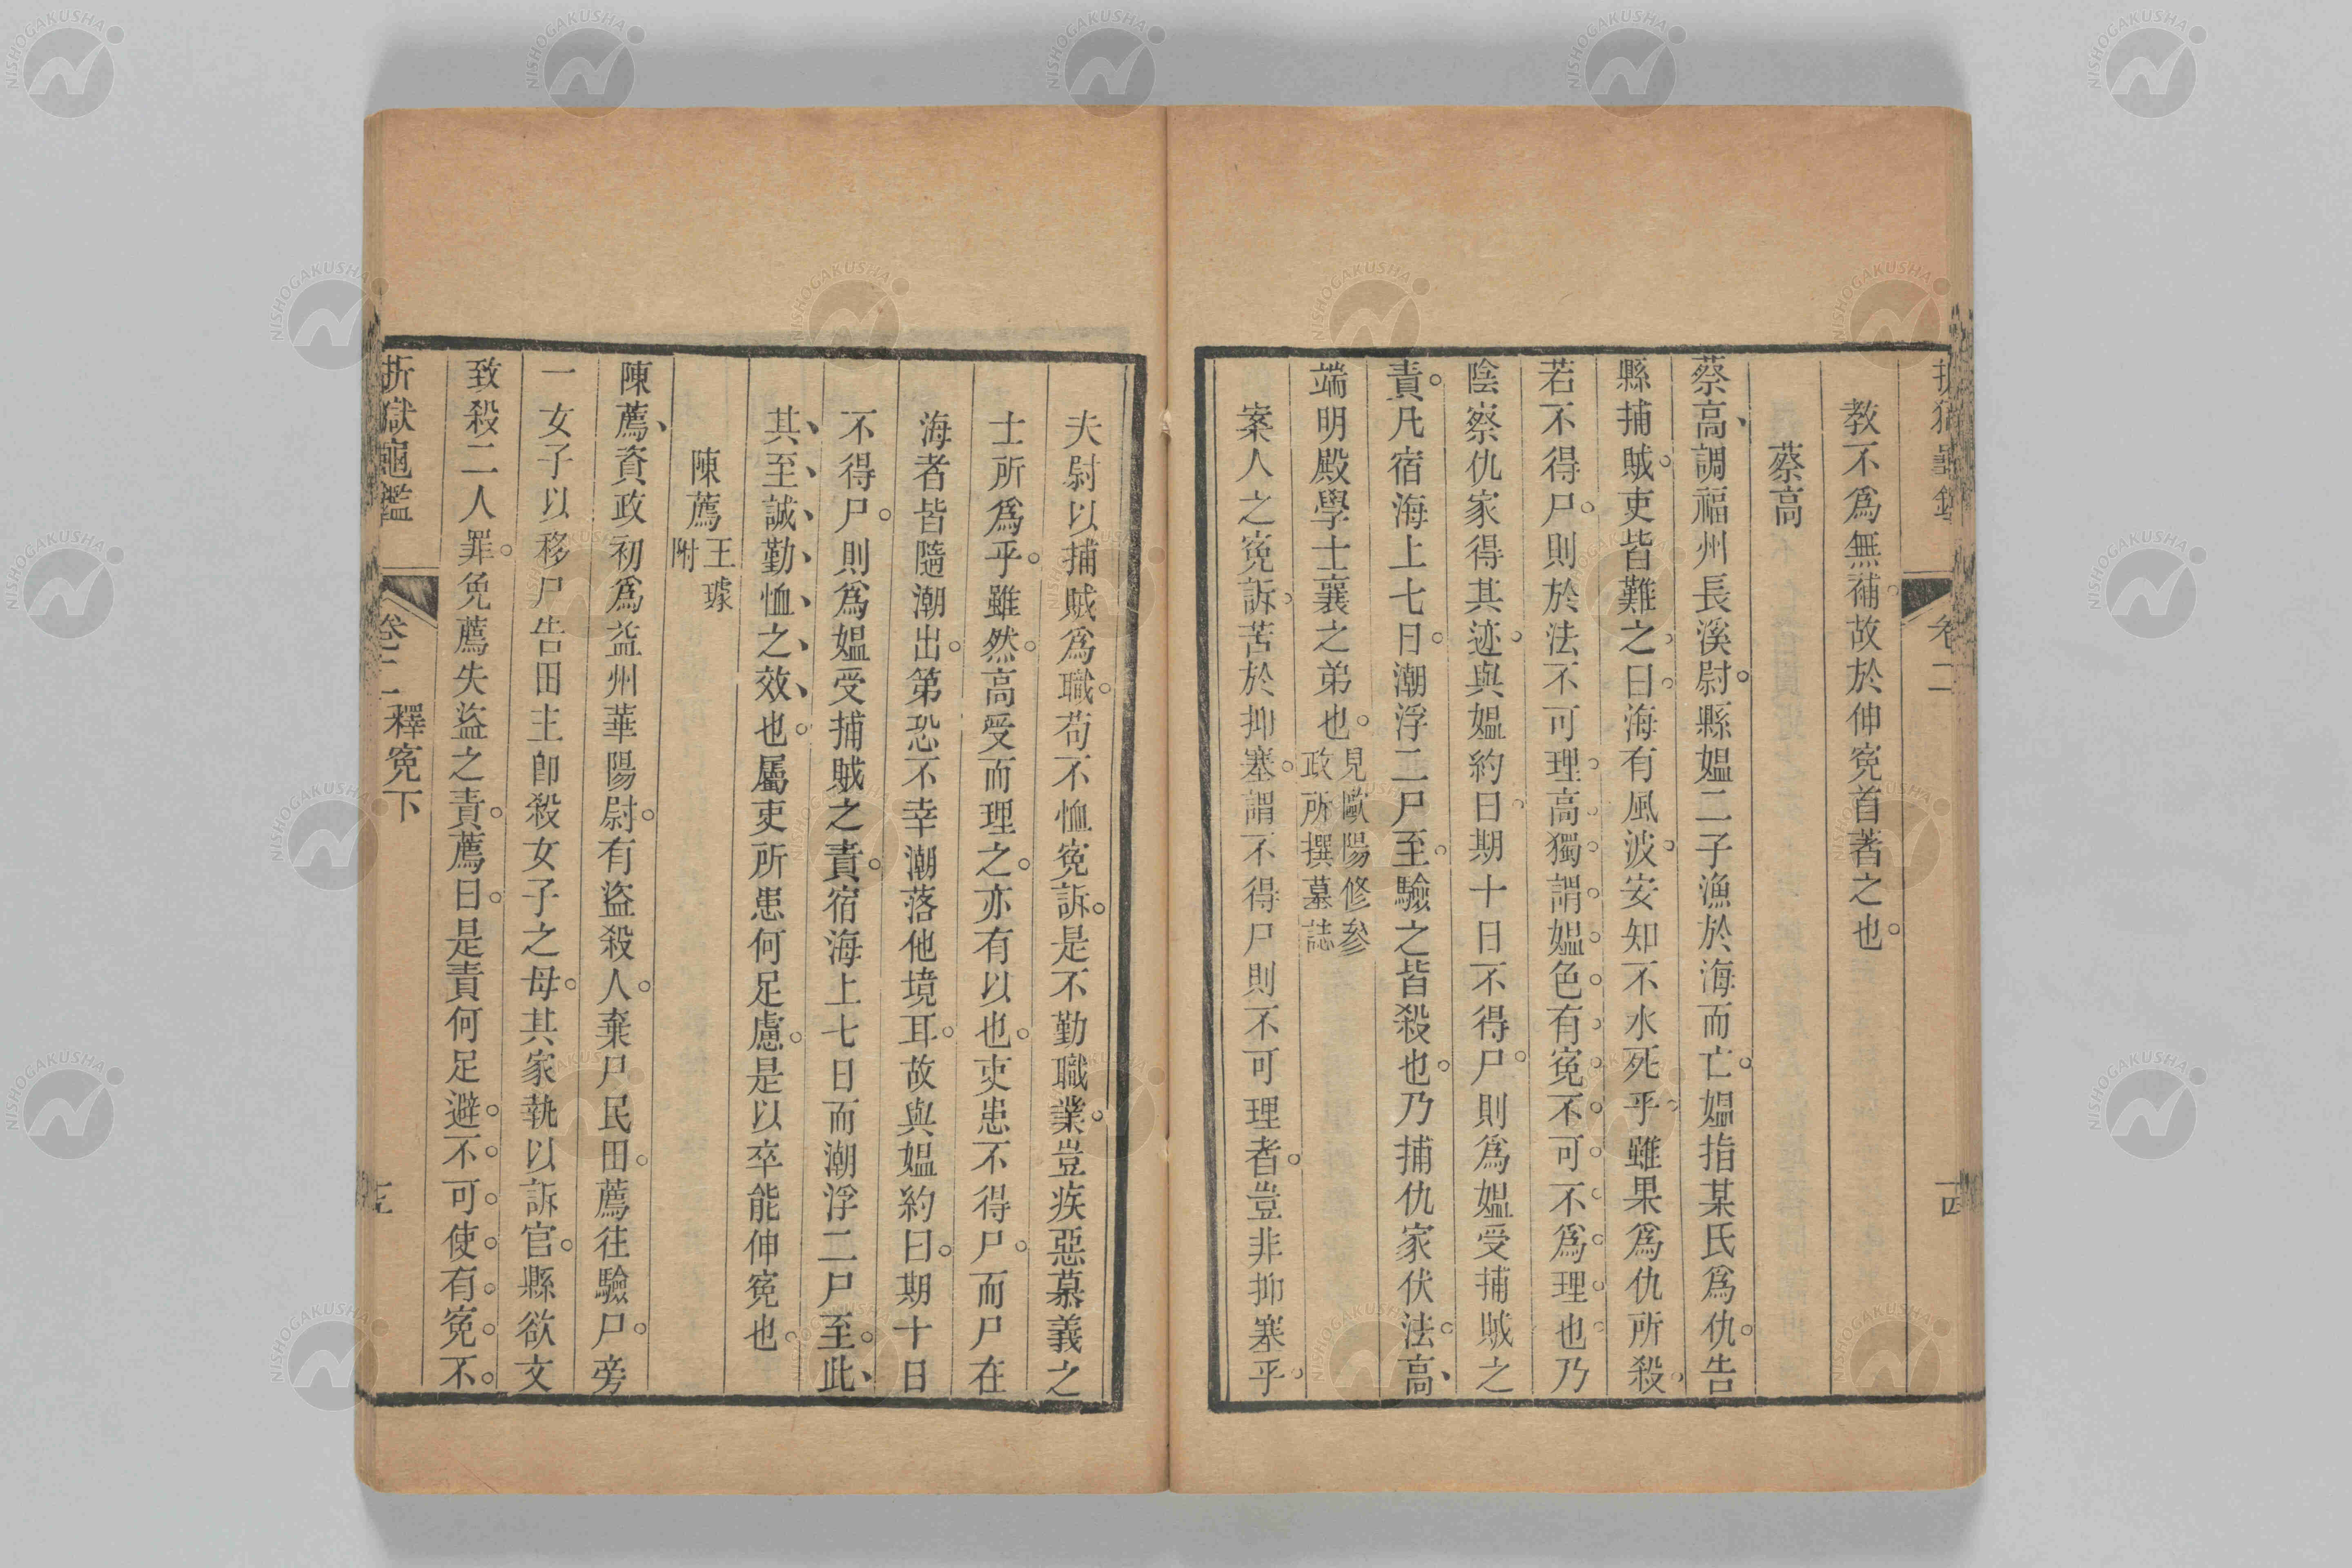 教不爲無補故於伸寃首著之也
蔡高
蔡高調福州長溪尉縣媪二子漁於海而亡媪指某氏爲仇告
縣捕賊吏皆難之曰海有風波安知不水死乎雖果爲仇所殺
若不得尸則於法不可理高獨謂媪色有寃不可不爲理也乃
陰察仇家得其迹與媪約曰期十日不得尸則爲媪受捕賊之
責凡宿海上七日潮浮二尸至驗之皆殺也乃捕仇家伏法高
端明殿學士襄之弟也見歐陽修參政所撰墓誌
案人之寃訴苦於抑塞謂不得尸則不可理者豈非抑塞乎
夫尉以捕賊爲職苟不恤寃訴是不勤職業豈疾惡慕義之
士所爲乎雖然高受而理之亦有以也吏患不得尸而尸在
海者皆隨潮出第恐不幸潮落他境耳故與媪約曰期十日
不得尸則爲媪受捕賊之責宿海上七日而潮浮二尸至此
其至誠勤恤之效也屬吏所患何足慮是以卒能伸寃也
陳薦王璩附
陳薦資政初爲益州華陽尉有盜殺人棄尸民田薦往驗尸旁
一女子以移尸告田主卽殺女子之母其家執以訴官縣欲文
致殺二人罪免薦失盜之責薦曰是責何足避不可使有寃不
折獄龜鑑 卷二 釋寃下
NISHOGAKUSHA